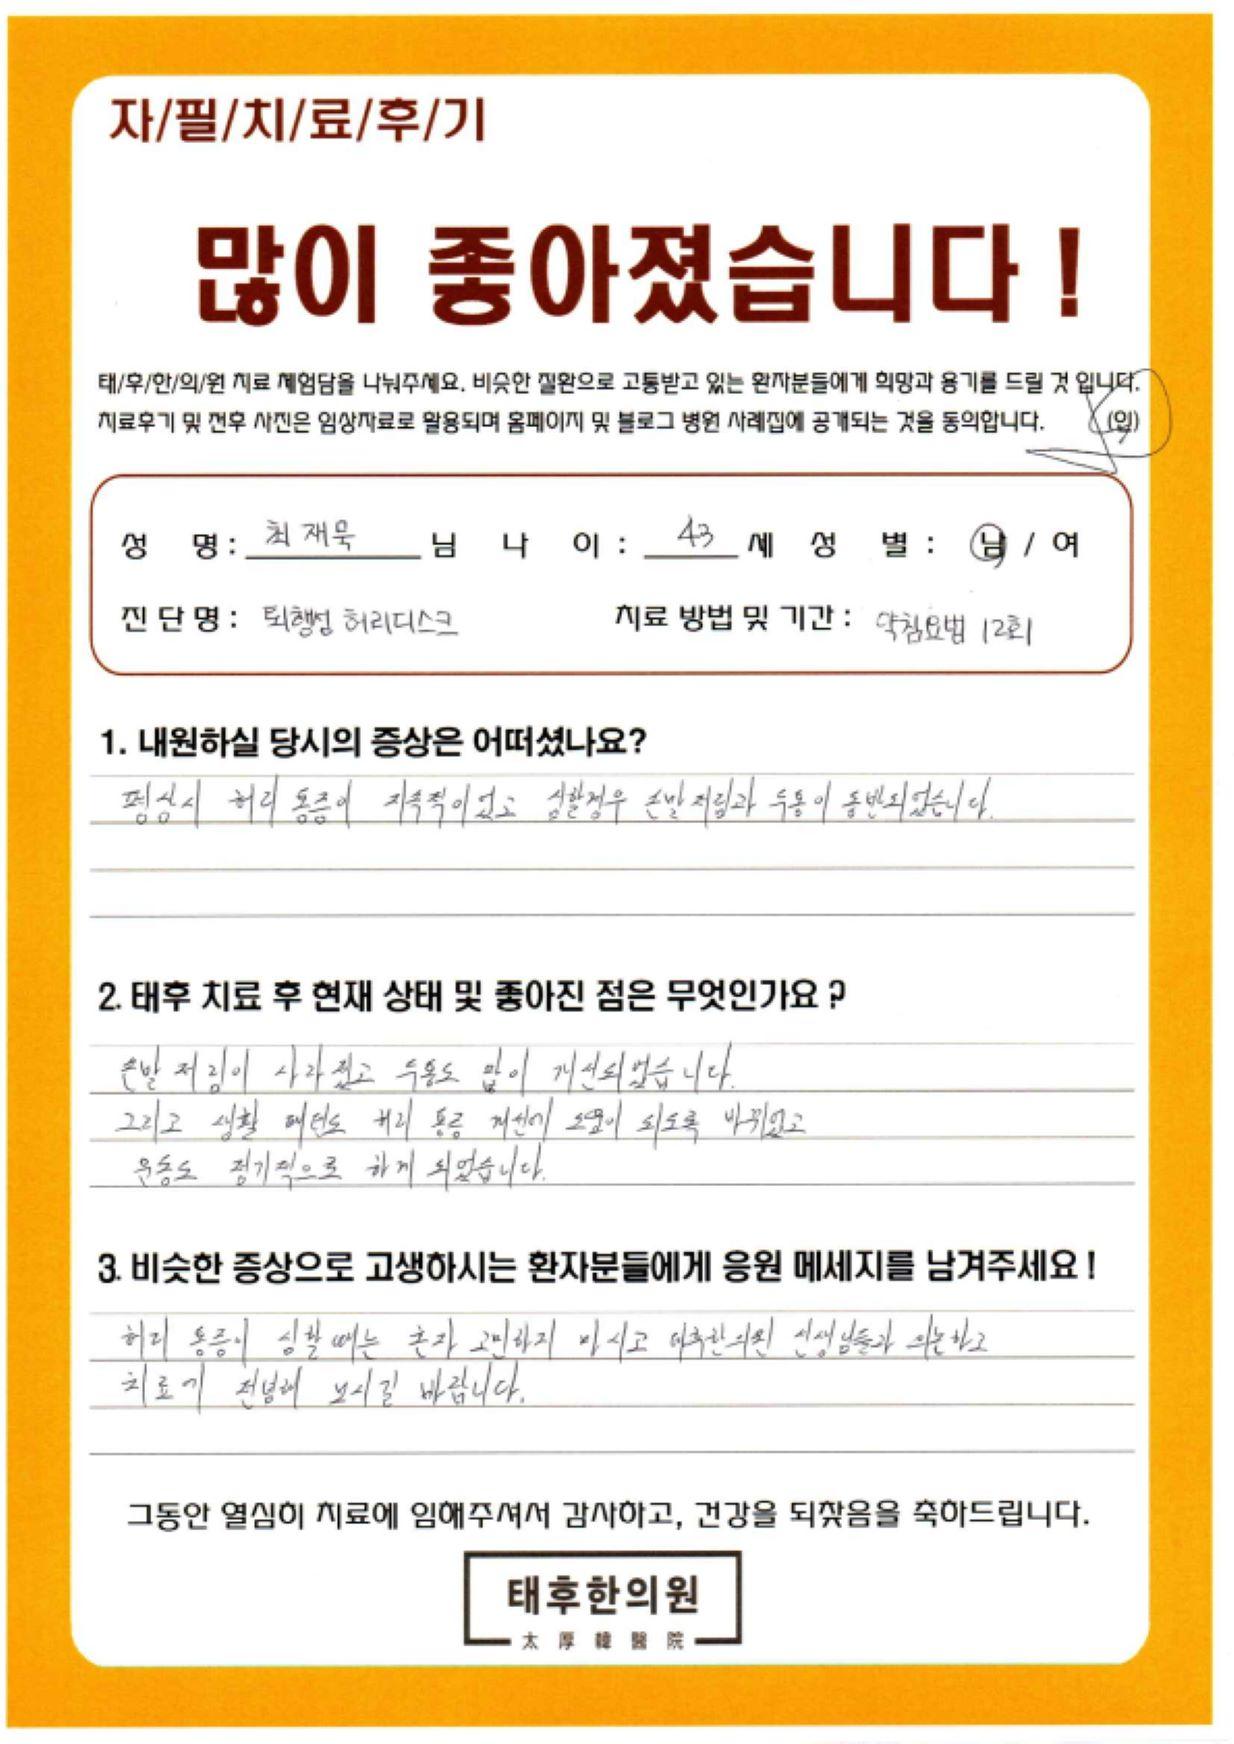 자/필/치/료/후/기
많이 좋아졌습니다!
태/후/한/의/원 치료 체험담을 나눠주세요. 비슷한 질환으로 고통받고 있는 환자분들에게 희망과 용기를 드릴 것 입니다.
치료후기 및 전후 사진은 임상자료로 활용되며 홈페이지 및 블로그 병원 사례집에 공개되는 것을 동의합니다. (인)
성 명 : 최재묵 님 나 이 : 43 세 성 별 : 남 / 여
진 단 명 : 퇴행성 허리디스크 치료 방법 및 기간 : 약침요법 12회
1. 내원하실 당시의 증상은 어떠셨나요?
평상시 허리 통증이 지속적이었고 심할경우 손발저림과 두통이 동반되었습니다.
2. 태후 치료 후 현재 상태 및 좋아진 점은 무엇인가요?
손발 저림이 사라졌고 두통도 많이 개선되었습니다.
그리고 생활 패턴도 허리 통증 개선에 도움이 되도록 바뀌었고
운동도 정기적으로 하게 되었습니다.
3. 비슷한 증상으로 고생하시는 환자분들에게 응원 메세지를 남겨주세요!
허리 통증이 심할 때는 혼자 고민하지 마시고 태후한의원 선생님들과 의논하고
치료에 전념해 보시길 바랍니다.
그동안 열심히 치료에 임해주셔서 감사하고, 건강을 되찾음을 축하드립니다.
태후한의원
太厚韓醫院